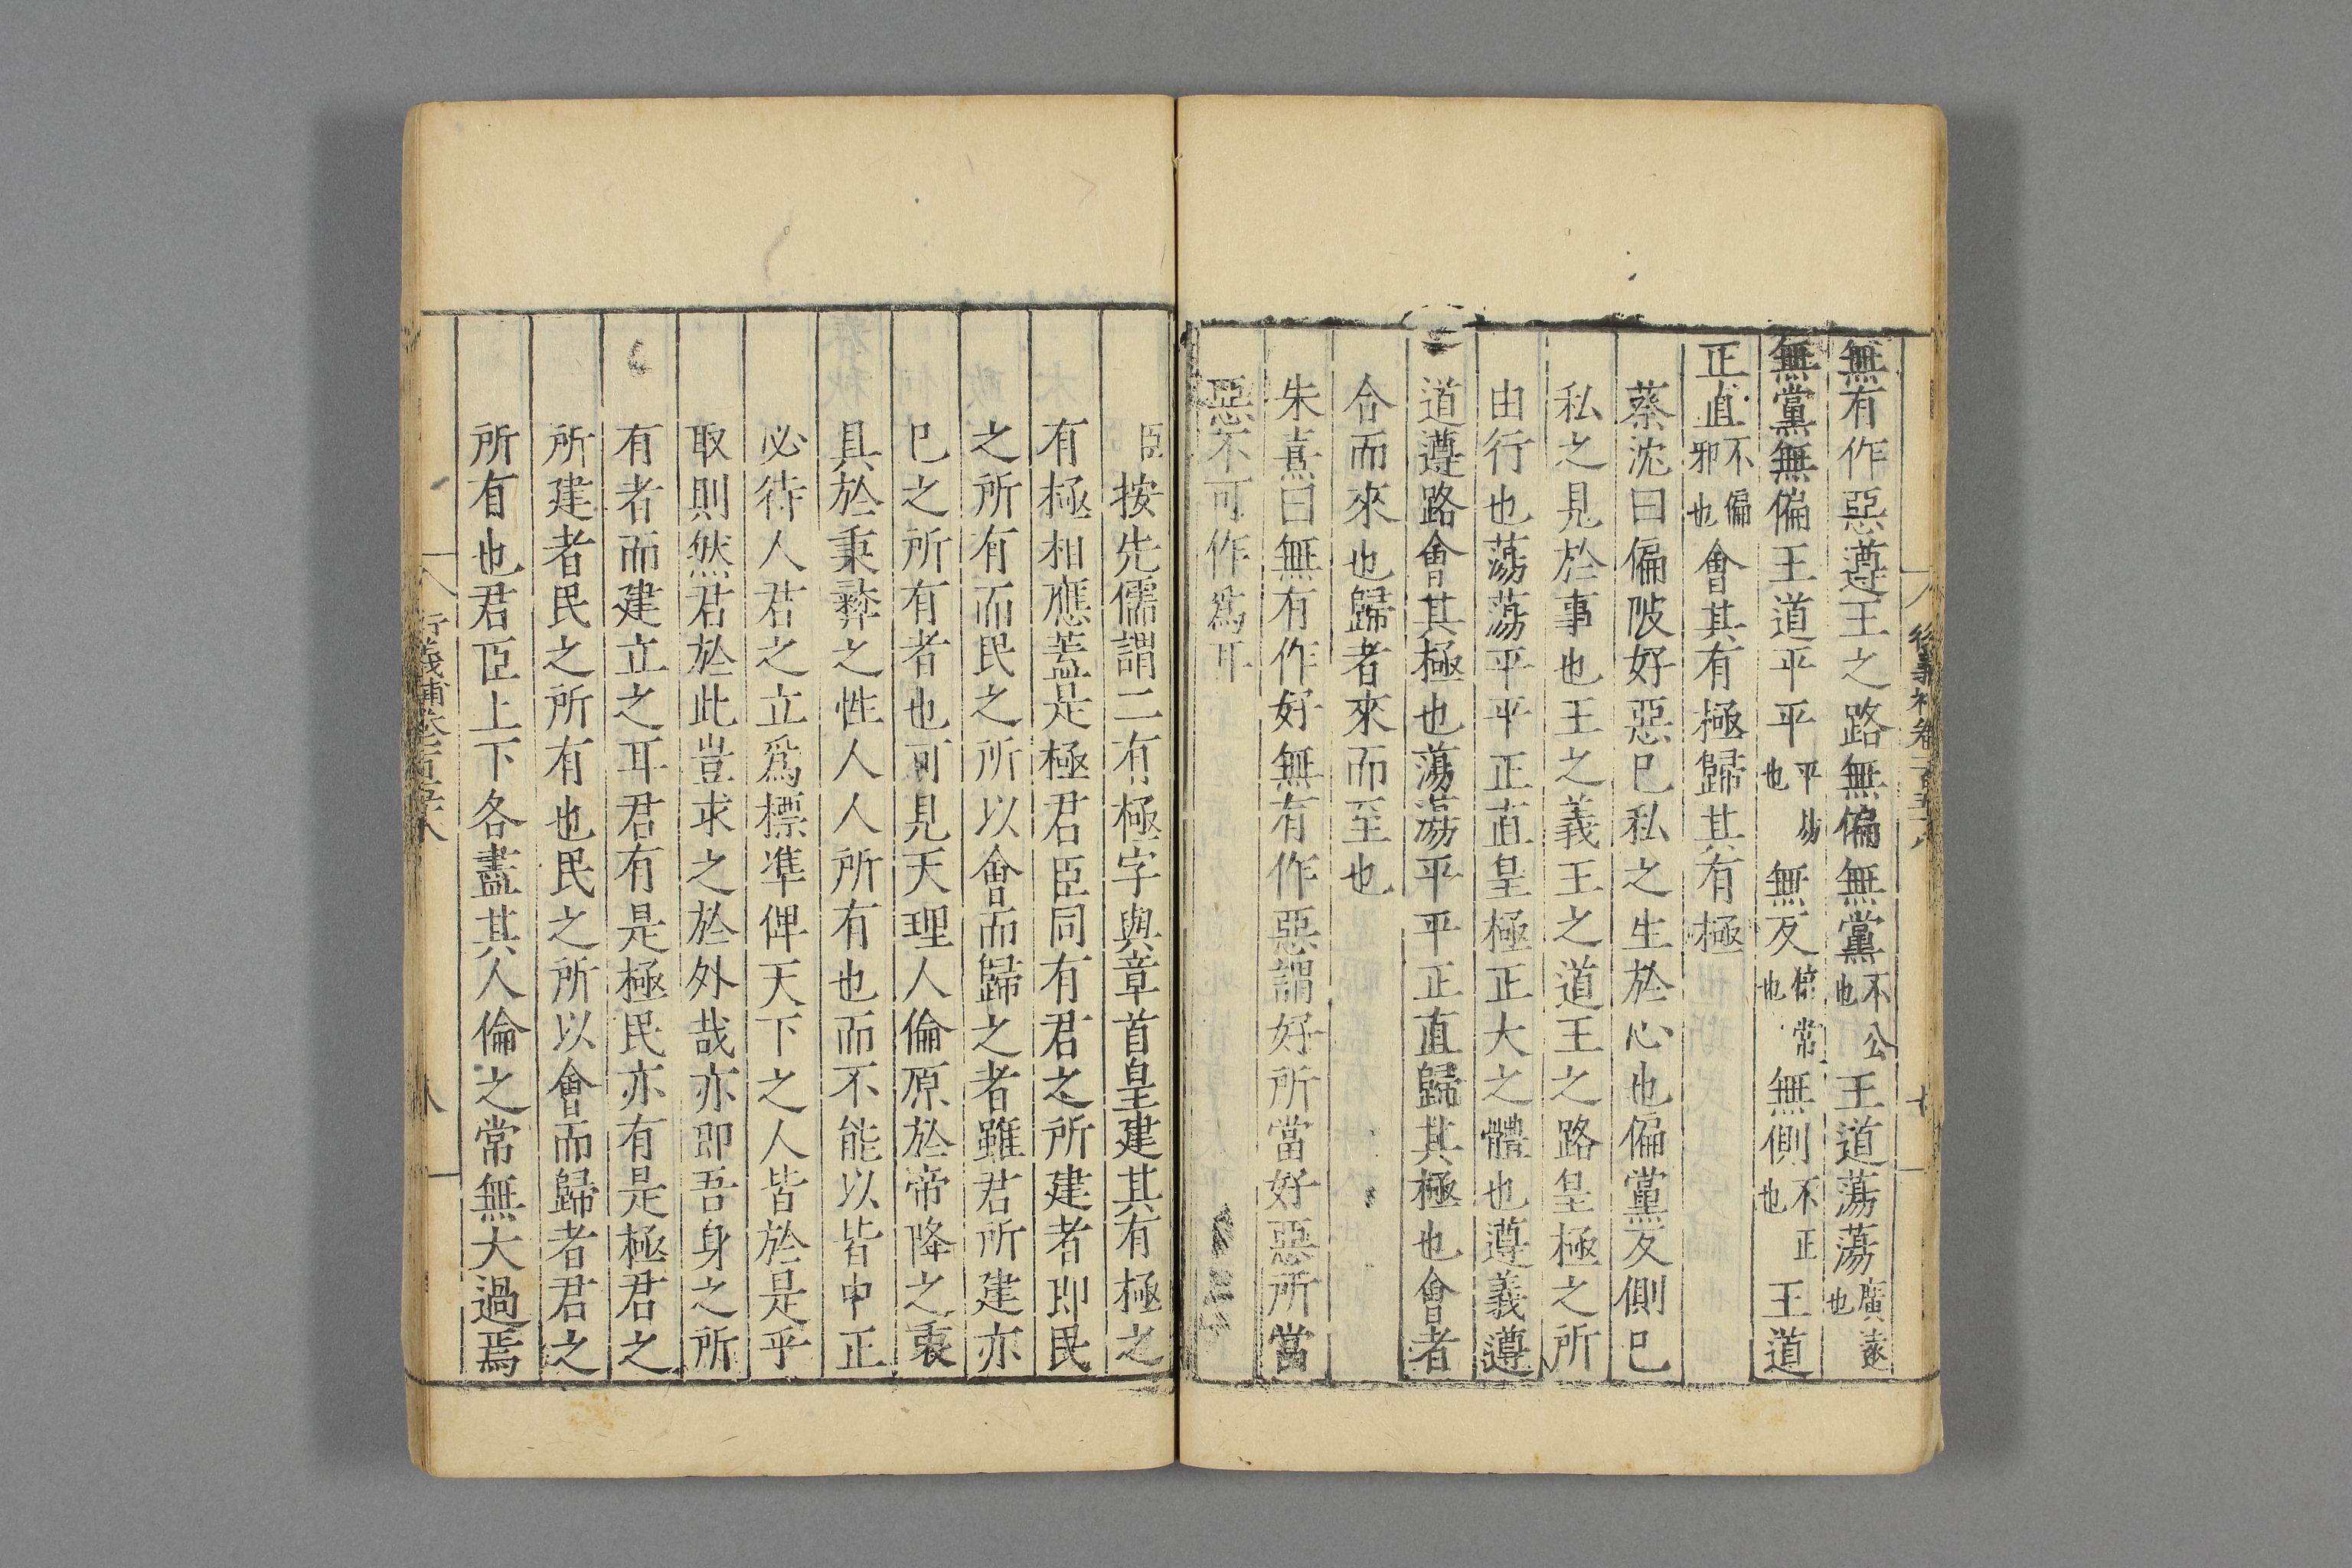 無有作惡遵王之路無偏無黨不公也王道蕩蕩廣遠也
無黨無偏王道平平平易也無反倍常也無側不正也王道
正直不偏邪也會其有極歸其有極
蔡沈曰偏陂好惡巳私之生於心也偏黨反側巳
私之見於事也王之義王之道王之路皇極之所
由行也蕩蕩平平正直皇極正大之體也遵義遵
道遵路會其極也蕩蕩平平正直歸其極也會者
合而來也歸者來而至也
朱熹曰無有作好無有作惡謂好所當好惡所當
惡不可作爲耳
臣按先儒謂二有極字與章首皇建其有極之
有極相應蓋是極君臣同有君之所建者即民
之所有而民之所以會而歸之者雖君所建亦
巳之所有者也可見天理人倫原於帝降之衷
具於秉彝之性人人所有也而不能以皆中正
必待人君之立爲標準俾天下之人皆於是乎
取則然君於此豈求之於外哉亦即吾身之所
有者而建立之耳君有是極民亦有是極君之
所建者民之所有也民之所以會而歸者君之
所有也君臣上下各盡其人倫之常無大過焉
衍義補卷一百五十八
八